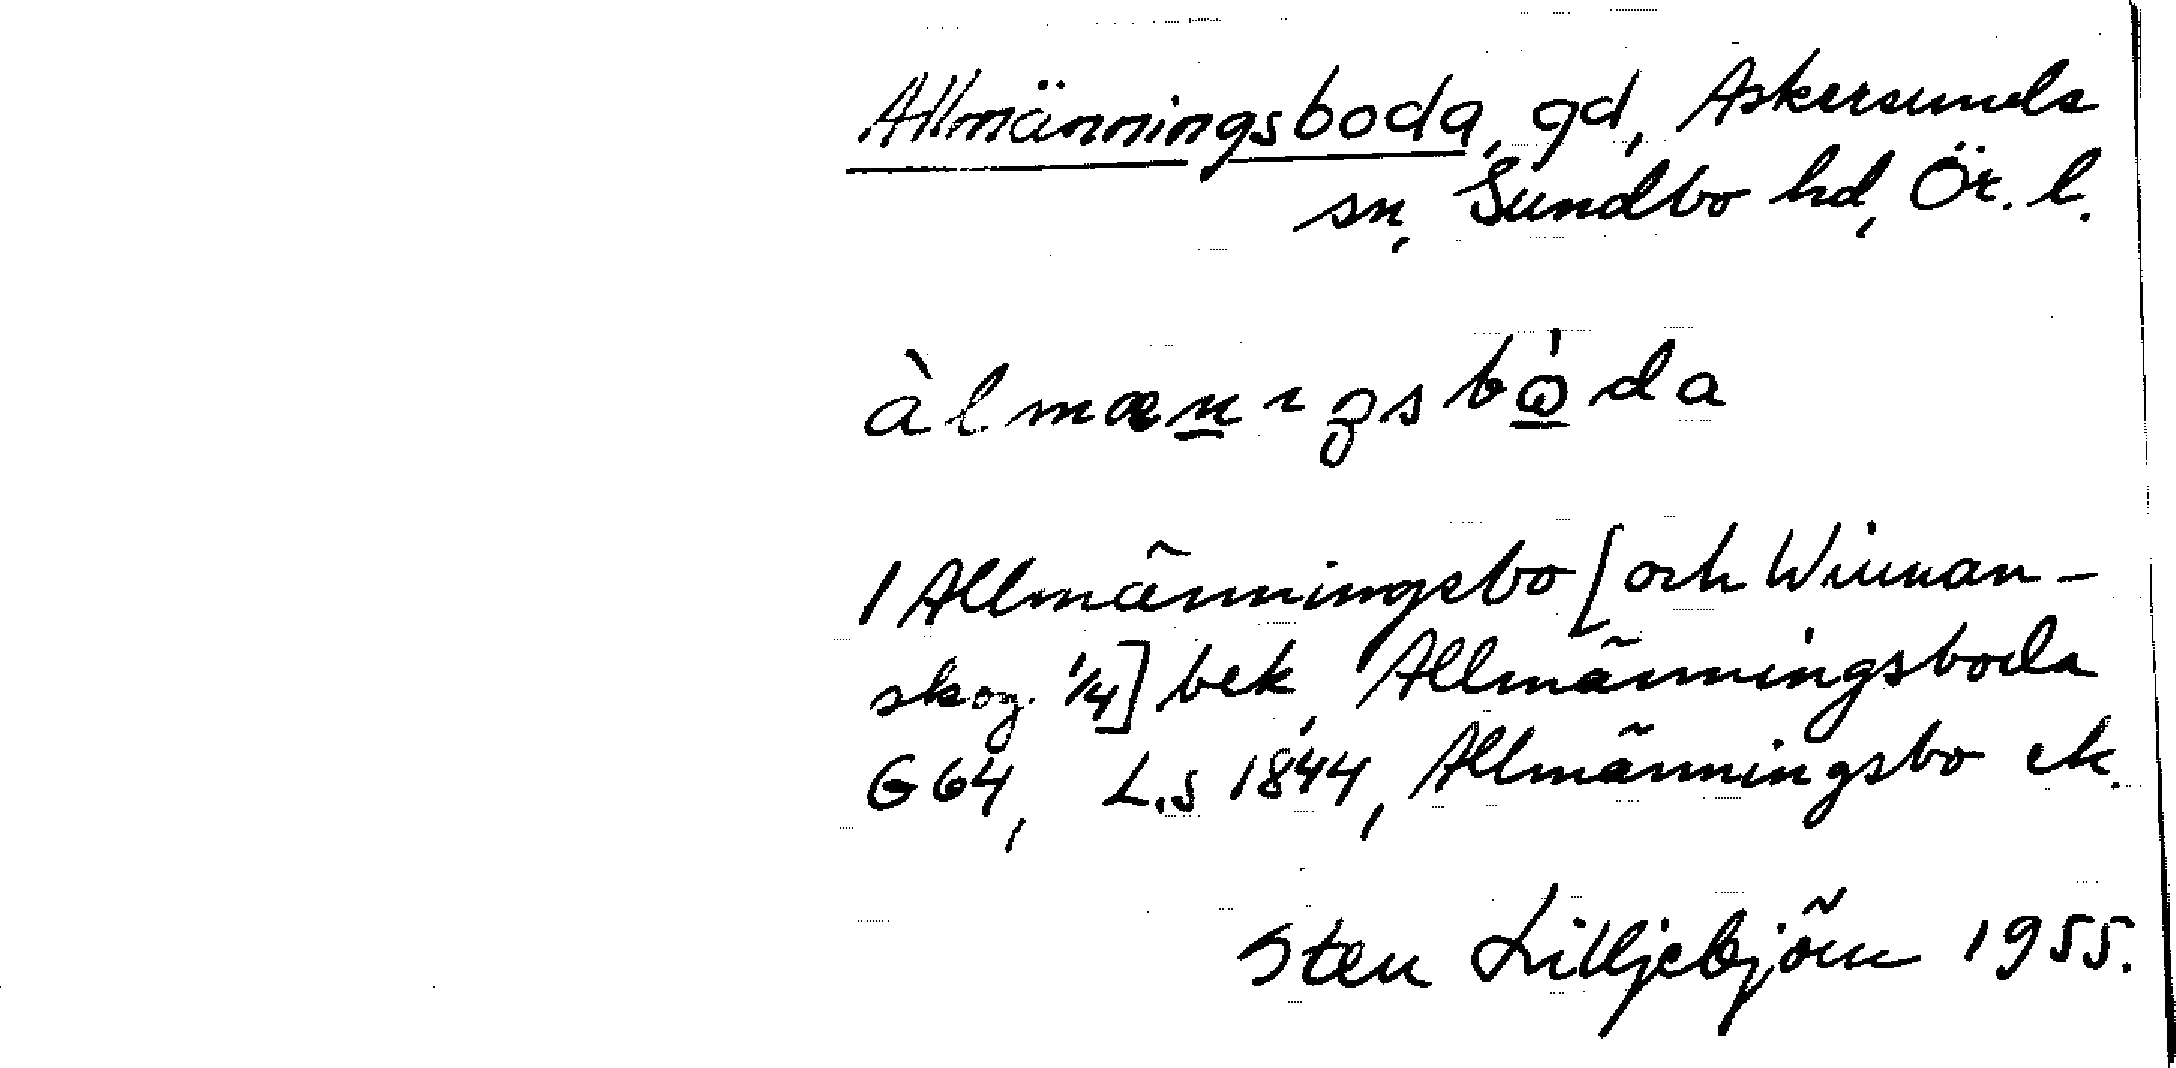 Allmänningsboda, gd, Askersunds
sn, Sundbo hd, Ör. l.
àlmænıŋsbòda
1 Allmänningsbo [och Wiman-
skog. 1/4] bek, Allmänningsboda
G 64, L.s 1844, Allmänningsbo ek.
Sten Lilljebjörn 1955.